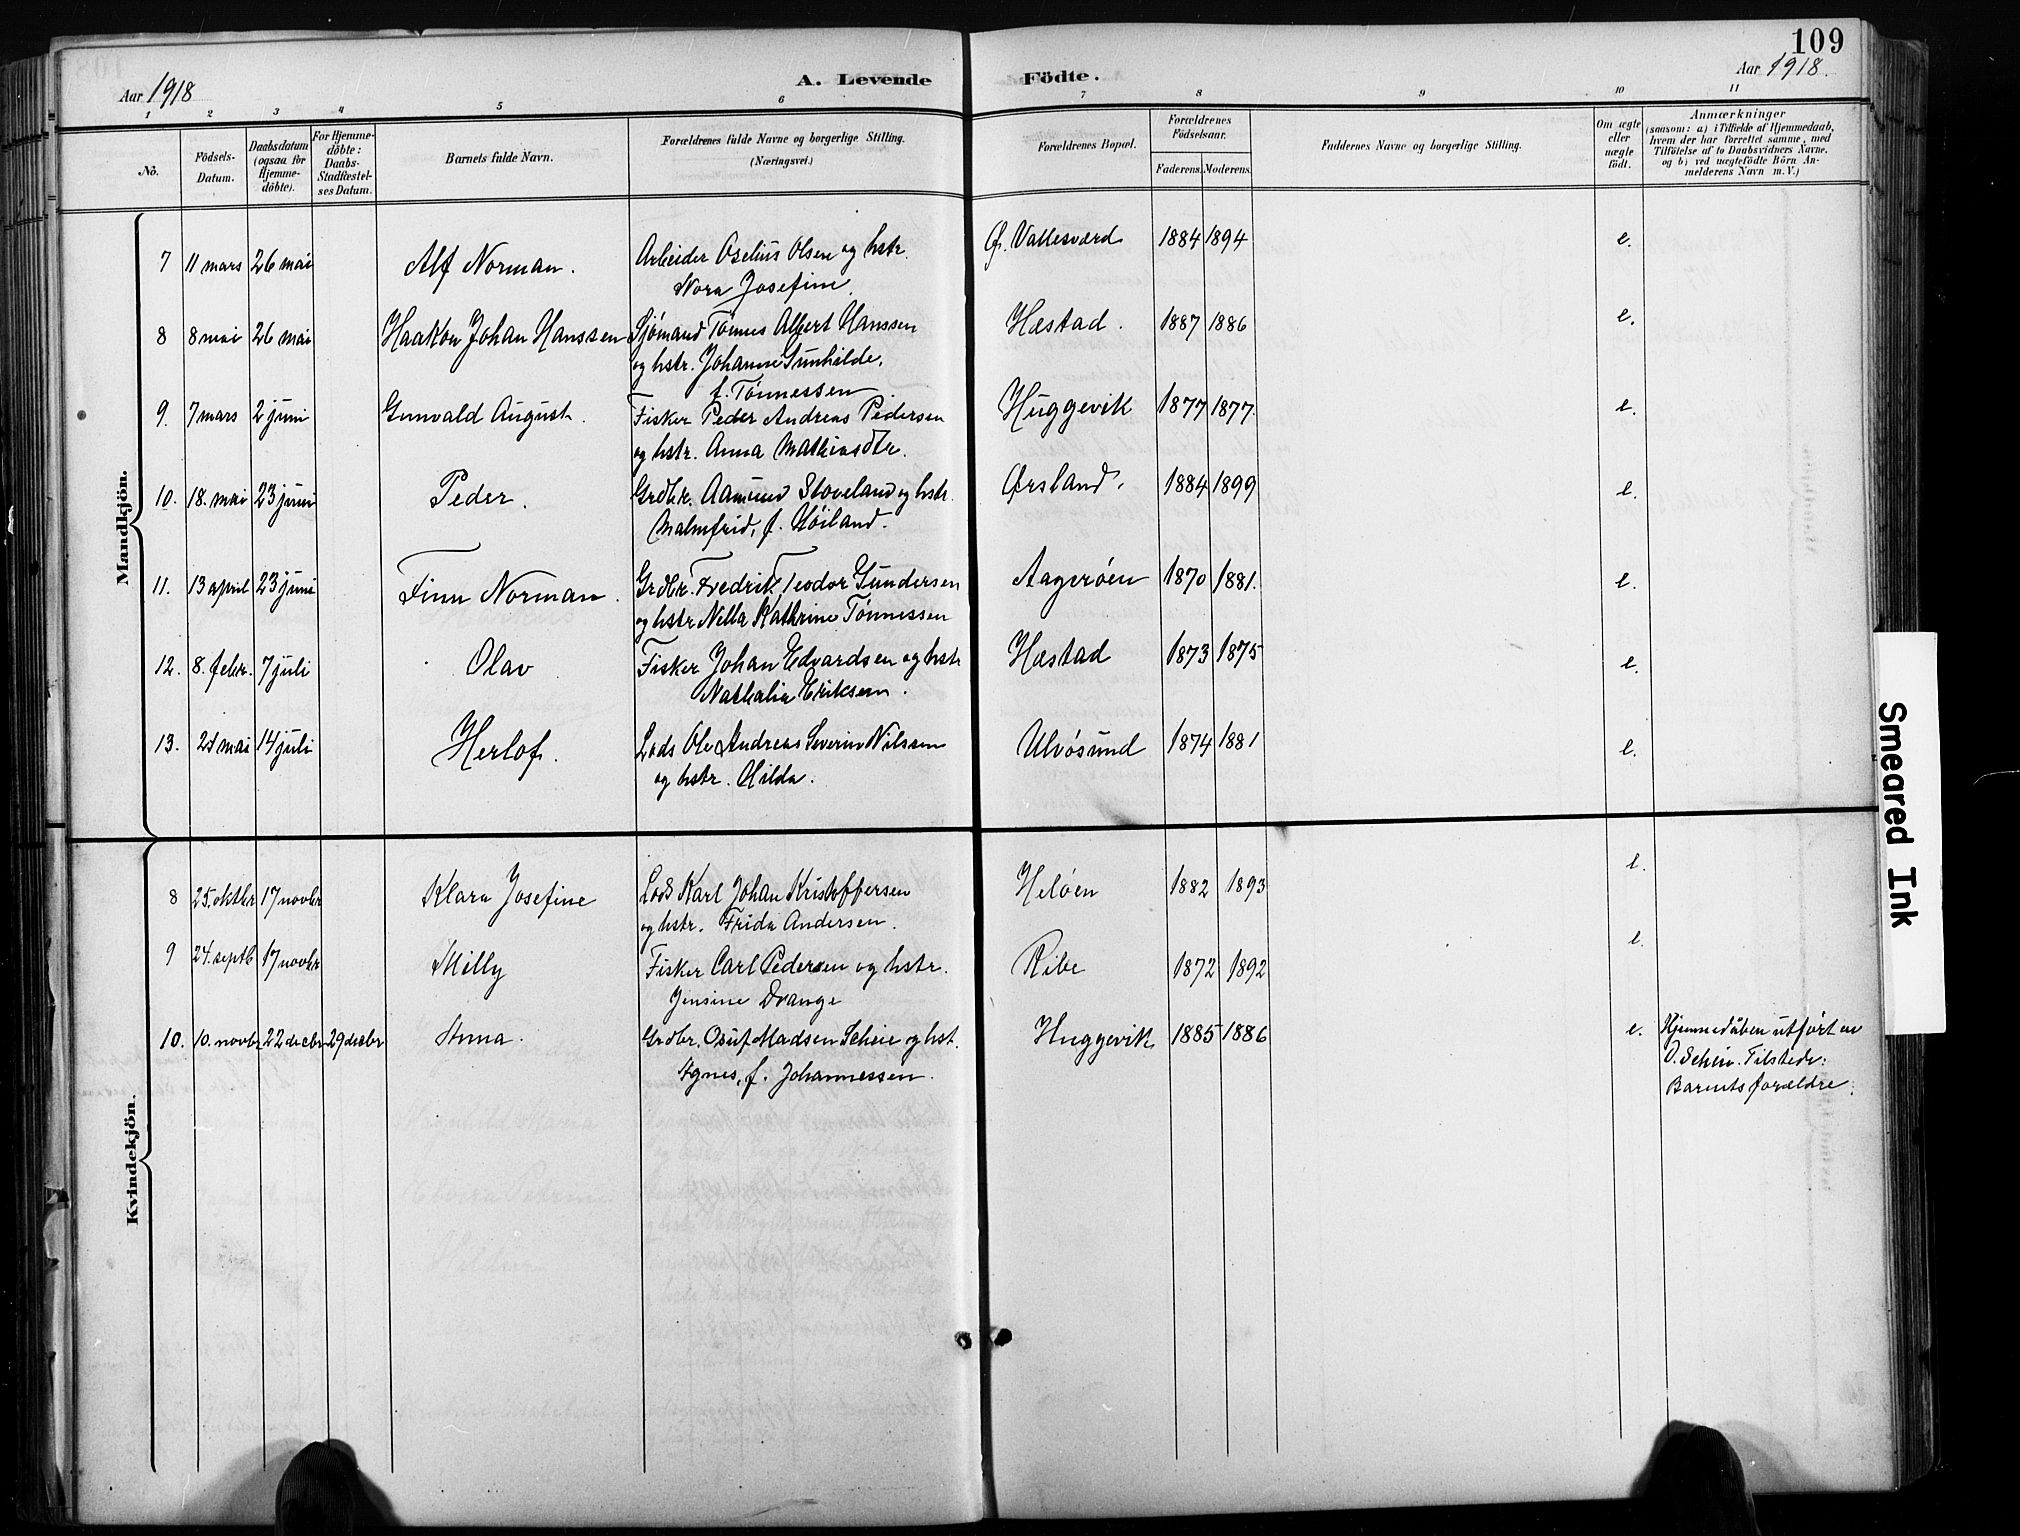 109
Aar 1918
A. Levende Födte.
Aar 1918.
1 2 3 4 5 6 7 8 9 10 11
No.
Födsels-
Datum.
Daabsdatum
(ogsaa for
Hjemme-
döbte).
For Hjemme-
döbte:
Daabs-
Stadfæstel-
ses Datum.
Barnets fulde Navn.
Forældrenes fulde Navne og borgerlige Stilling.
(Næringsvei.)
Forældrenes Bopæl.
Forældrenes
Födselsaar.
Faderens. Moderens.
Faddernes Navne og borgerlige Stilling.
Om ægte
eller
uægte
födt.
Anmærkninger
(saasom: a) i Tilfælde af Hjemmedaab,
hvem der har forrettet samme, med
Tilföielse af to Daabsvidners Navne,
og b) ved uægtefödte Börn An-
melderens Navn m. V.)
Mandkjön.
7 11 mars 26 mai Alf Norman. Arbeider Oselius Olsen og hstr. Ø. Vallesværd 1884 1894 e.
Nora Josefine.
8 8 mai 26 mai Haakon Johan Hanssen Sjømand Tønnes Albert Hanssen Hæstad. 1887 1886 e.
og hstr. Johanne Gunhilde,
f. Tønnessen
9. 7 mars 2 juni Gunvald August. Fisker Peder Andreas Pedersen Huggevik 1877 1877. e.
og hstr. Anna Mathiasdtr.
10. 18. mai 23 juni Peder. Grdbr. Aamund Stoveland og hstr. Ørsland. 1884 1899 e.
Malmfrid, f. Høiland.
11. 13 april 23 juni Finn Norman. Grdbr. Fredrik Teodor Gundersen Aagerøen 1870 1881. e.
og hstr Nella Kathrine Tønnessen
12. 8. febr. 7 juli Olav Fisker Johan Edvardsen og hstr Hæstad 1873 1875 e.
Nathalia Eriksen.
13. 21 mai 14 juli Herlof. Lods Ole Andreas Severin Nilssen Ulvøsund 1874 1881 e.
og hstr. Hilda.
Kvindekjön.
8 25. oktbr 17 novbr Klara Josefine Lods Karl Johan Kristoffersen Heløen 1882 1893 e.
og hstr. Frida Andersen.
9 24. septb 17 novbr Milly Fisker Carl Pedersen og hstr. Ribe 1872 1892 e.
Jensine Drange
10. 10. novbr 22 decbr 29 decbr Anna. Grdbr. Osuf Madsen Scheie og hst. Huggevik 1885 1886 e. Hjemmedåben utført av
Agnes, f. Johannessen. O. Scheie. Tilstede:
Barnets forældre.
Smeared Ink